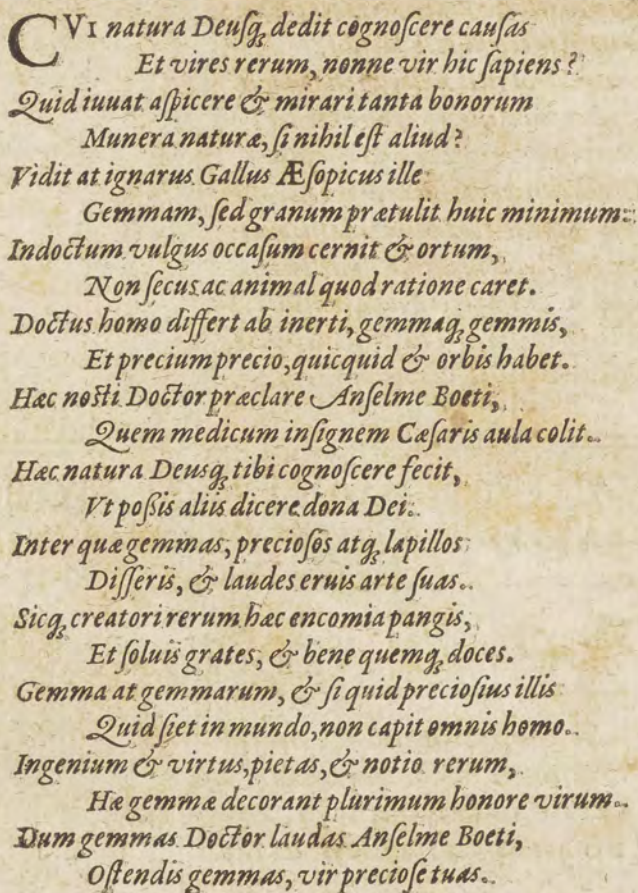 CVI natura Deuſq́ꝫ dedit cognoſcere cauſas
Et vires rerum, nonne vir hic ſapiens?
Quid iuuat aſpicere & mirari tanta bonorum
Munera naturæ, ſi nihil eſt aliud?
Vidit at ignarus Gallus Æſopicus ille
Gemmam, ſed granum prætulit huic minimum.
Indoctum vulgus occaſum cernit & ortum,
Non ſecus ac animal quod ratione caret.
Doctus homo differt ab inerti, gemmaq́ꝫ gemmis,
Et precium precio, quicquid & orbis habet.
Hæc noſti Doctor præclare Anſelme Boeti,
Quem medicum inſignem Cæſaris aula colit.
Hæc natura Deuſq́ꝫ tibi cognoſcere fecit,
Vt poßis aliis dicere dona Dei.
Inter quæ gemmas, precioſos atq́ꝫ lapillos
Diſſeris, & laudes eruis arte ſuas.
Sicq́ꝫ creatori rerum hæc encomia pangis,
Et ſoluis grates, & bene quemq́ꝫ doces.
Gemma at gemmarum, & ſi quid precioſius illis
Quid ſiet in mundo, non capit omnis homo.
Ingenium & virtus, pietas, & notio rerum,
Hæ gemmæ decorant plurimum honore virum.
Dum gemmas Doctor laudas Anſelme Boeti,
Oſtendis gemmas, vir precioſe tuas.